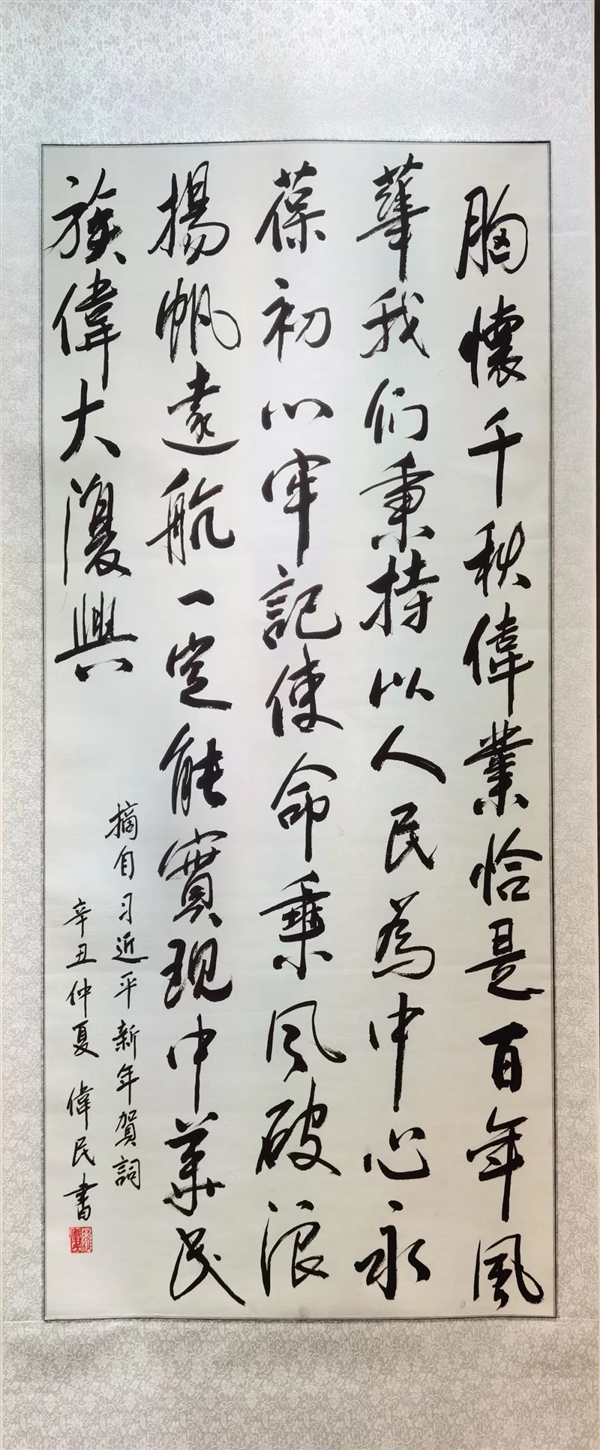 胸懷千秋偉業恰是百年風
華我们秉持以人民為中心永
葆初心牢記使命乘风破浪
揚帆遠航一定能實現中華民
族偉大復興
摘自习近平新年賀詞
辛丑仲夏 偉民書